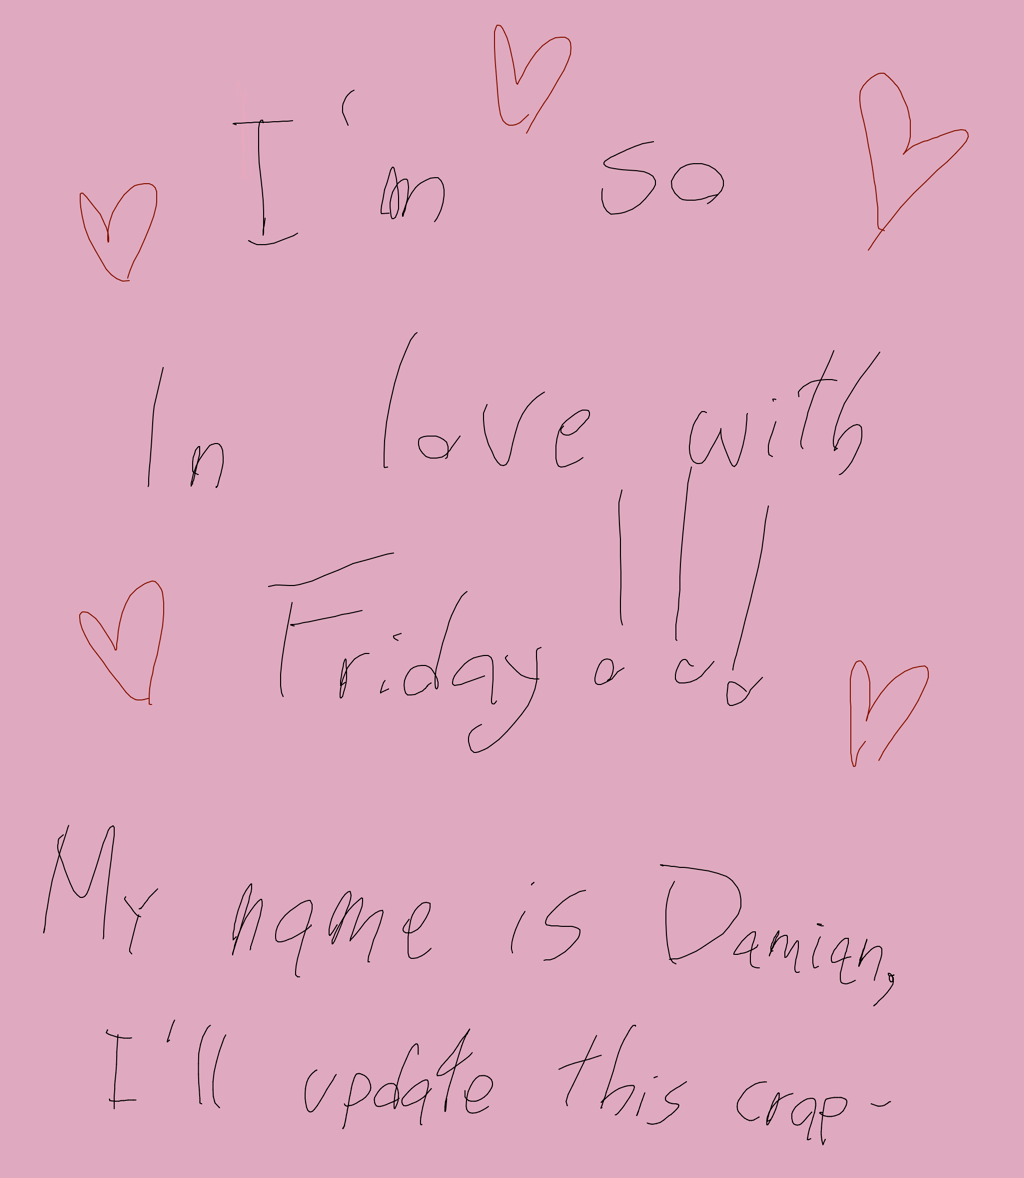 I'm so
In love with
Friday !!!
My name is Damian,
I'll update this crap-